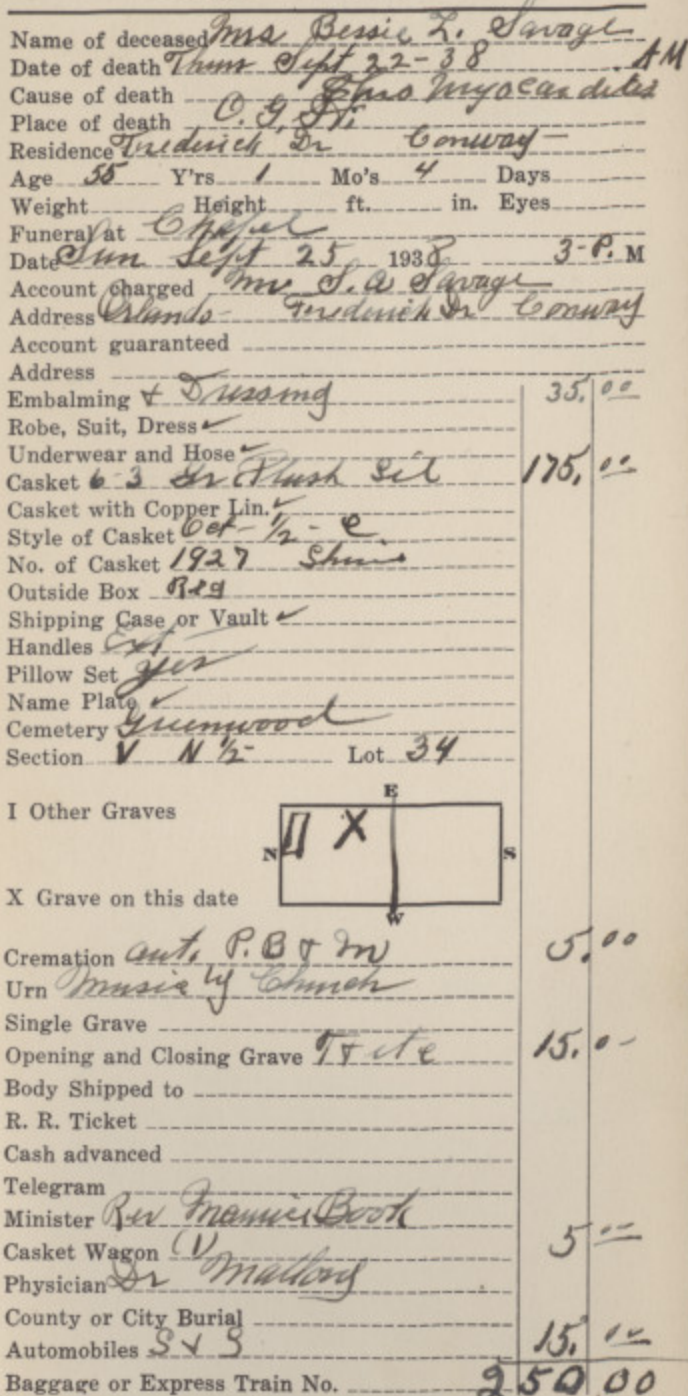 Name of deceased Mrs Bessie L. Savage
Date of death Thurs Sept 22-38 AM
Cause of death Chro Myocarditis
Place of death O. G. H.
Residence Frederick Dr Conway
Age 55 Y'rs 1 Mo's 4 Days
Weight Height ft. in. Eyes
Funeral at Chapel
Date Sun Sept 25 1938 3-P. M
Account charged Mr S. A Savage
Address Orlando- Frederick Dr Conway
Account guaranteed
Address
Embalming & Dressing 35.00
Robe, Suit, Dress ✓
Underwear and Hose ✓
Casket 6-3 Gr Plush Sil 175.00
Casket with Copper Lin. ✓
Style of Casket Oct- 1/2- C
No. of Casket 1927
Outside Box Reg
Shipping Case or Vault ✓
Handles Ext
Pillow Set yes
Name Plate ✓
Cemetery Greenwood
Section V N 1/2 Lot 34
E
I Other Graves
X
N S
X Grave on this date
W
Cremation aut. P. B & M 5.00
Urn Music by Church
Single Grave
Opening and Closing Grave T & 15.0-
Body Shipped to
R. R. Ticket
Cash advanced
Telegram
Minister Rev Maurice Book
Casket Wagon (V) 5 00
Physician Dr Mallory
County or City Burial
Automobiles S & S 15.00
Baggage or Express Train No. 250 00